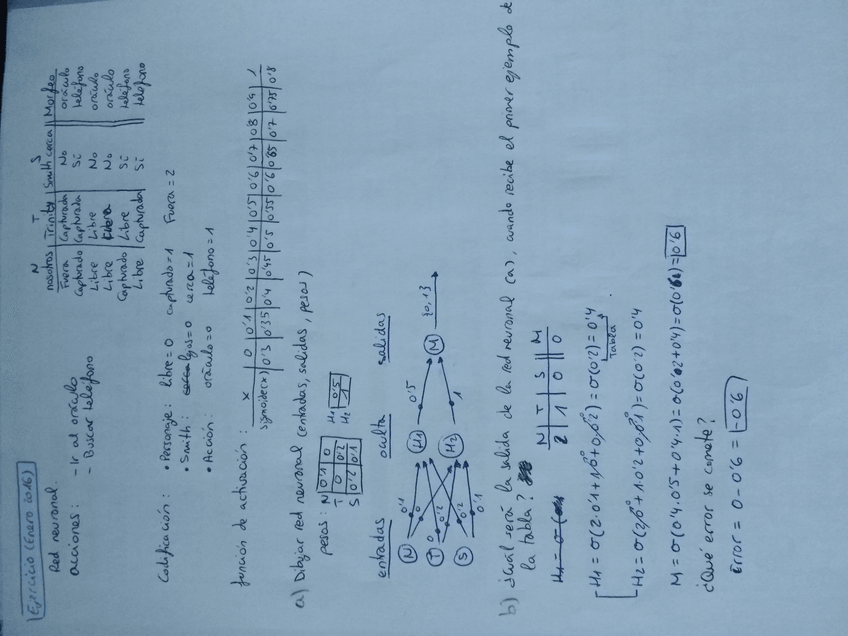 Ejercicio (Enero 2016)
Red neuronal.
acciones: - Ir al oráculo
- Buscar teléfono
N T S
nosotros | Trinity | Smith cerca || Morfeo
Fuera | Capturada | No || oráculo
Capturado | Capturada | Sí || teléfono
Libre | Libre | No || oráculo
Libre | Fuera | No || oráculo
Capturado | Libre | Sí || teléfono
Libre | Capturada | Sí || teléfono
Codificación: • Personaje: libre=0 capturado=1 Fuera=2
• Smith: lejos=0 cerca=1
• Acción: oráculo=0 teléfono=1
función de activación:
x | 0 | 0'1 | 0'2 | 0'3 | 0'4 | 0'5 | 0'6 | 0'7 | 0'8 | 0'9 | 1
sigmoide(x) | 0'3 | 0'35 | 0'4 | 0'45 | 0'5 | 0'55 | 0'6 | 0'65 | 0'7 | 0'75 | 0'8
a) Dibujar red neuronal (entradas, salidas, pesos)
pesos: N 0'1 0
T 0 0'2
S 0'2 0'1
H1 0'5
H2 1
entradas oculta salidas
N 0'1 0 H1 0'5
T 0 0'2 M {0,1}
S 0'2 0'1 H2 1
b) ¿Cuál será la salida de la red neuronal (a), cuando recibe el primer ejemplo de
la tabla?
N | T | S || M
2 | 1 | 0 || 0
H1 = σ(
H1 = σ(2·0'1+1·0+0·0'2) = σ(0'2) = 0'4
Tabla
H2 = σ(2·0+1·0'2+0·0'1) = σ(0'2) = 0'4
M = σ(0'4·0'5+0'4·1) = σ(0'2+0'4) = σ(0'6) = 0'6
¿Qué error se comete?
Error = 0-0'6 = -0'6